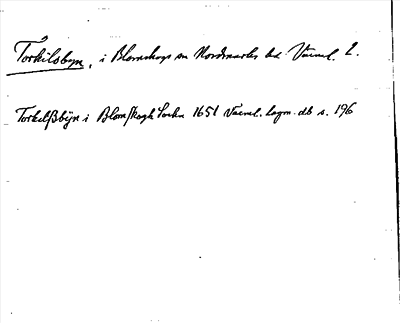 Torkilsbyn, i Blomskogs sn Nordmarks hd Värml. l.
Torkelßbÿn i Blomskogh Sochn 1651 Värml. lagm. db s. 196